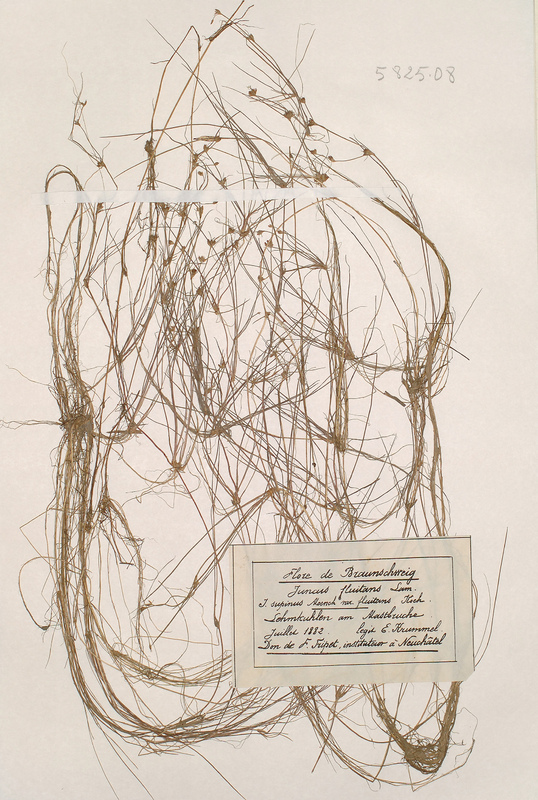 5825.08
Flore de Braunschweig
Juncus fluitans Lam.
J. supinus Moench var fluitans Koch.
Lehmkuhlen am Mastbruche
Juillet 1882. legit E. Krummel
Don de F. Tripet, instituteur à Neuchâtel